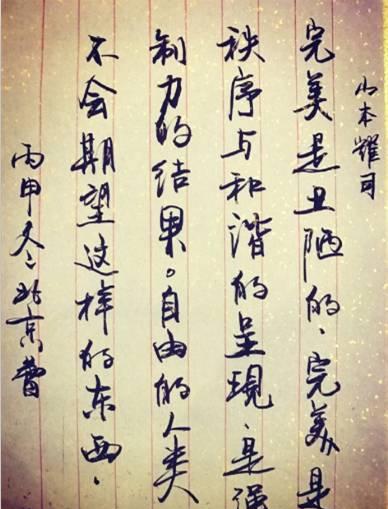 山本耀司
完美是丑陋的、完美是
秩序与和谐的呈现、是强
制力的结果。自由的人类
不会期望这样的东西、
丙申冬北京曹